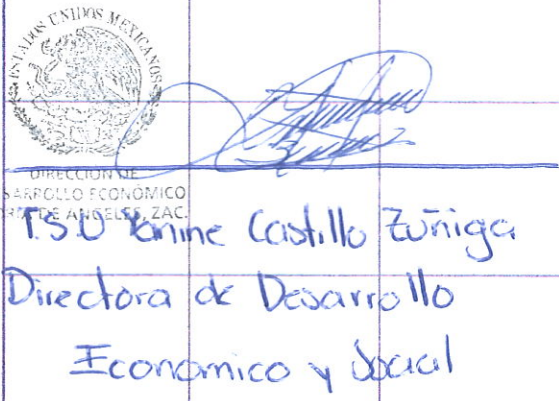 ESTADOS UNIDOS MEXICANOS
DIRECCIÓN DE
SARROLLO ECONÓMICO
DE ANGELES, ZAC.
T.S.U Yanine Castillo Zuñiga
Directora de Desarrollo
Economico y Social